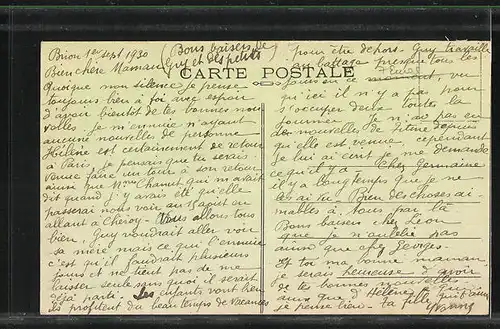 Briou 1er sept 1930
(Bons baisers de
Guy et des petits)
CARTE POSTALE
Bien chère Maman
Quoique mon silence je pense
toujours bien à toi avec espoir
d'avoir bientôt de tes bonnes nou-
velles. Je m'ennuie n'ayant
aucune nouvelles de personne
Hélène est certainement de retour
à Paris, je pensais que tu serais
venue faire un tour à son retour
ainsi que Mme Chanut, qui m'avait
dit quand j'y avais été qu'elle
passerai nous voir au 15 août en
allant à Choisy. Vous allons tous
bien. Guy voudrait aller voir
sa mère mais ce qui l'ennuie
c'est qu'il faudrait plusieurs
jours et ne tient pas de me
laisser seule sans quoi il serait
déjà parti. Les enfants vont bien
ils profitent du beau temps de vacances
pour être dehors. Guy travaille
au presque tous les
jours en ce moment, vu
qu'ici il n'y a pas pour
s'occuper deux toutes la
journée. Je n'ai pas eu
des nouvelles de depuis
qu'elle est venue, cependant
je lui ai écrit je me demande
ce qu'il y a. Chez Germaine
il y a longtemps que je ne
les ai vu. Bien des choses ai-
mables à tous par là
Bons baisers chez Léon
que je n'oublie pas
ainsi que chez Georges.
Et toi ma bonne maman
je serais heureuse d'avoir
de tes bonnes nouvelles
ainsi que d'Hélène à qui
je pense bien. Ta fille qui t'aime
Yvonne